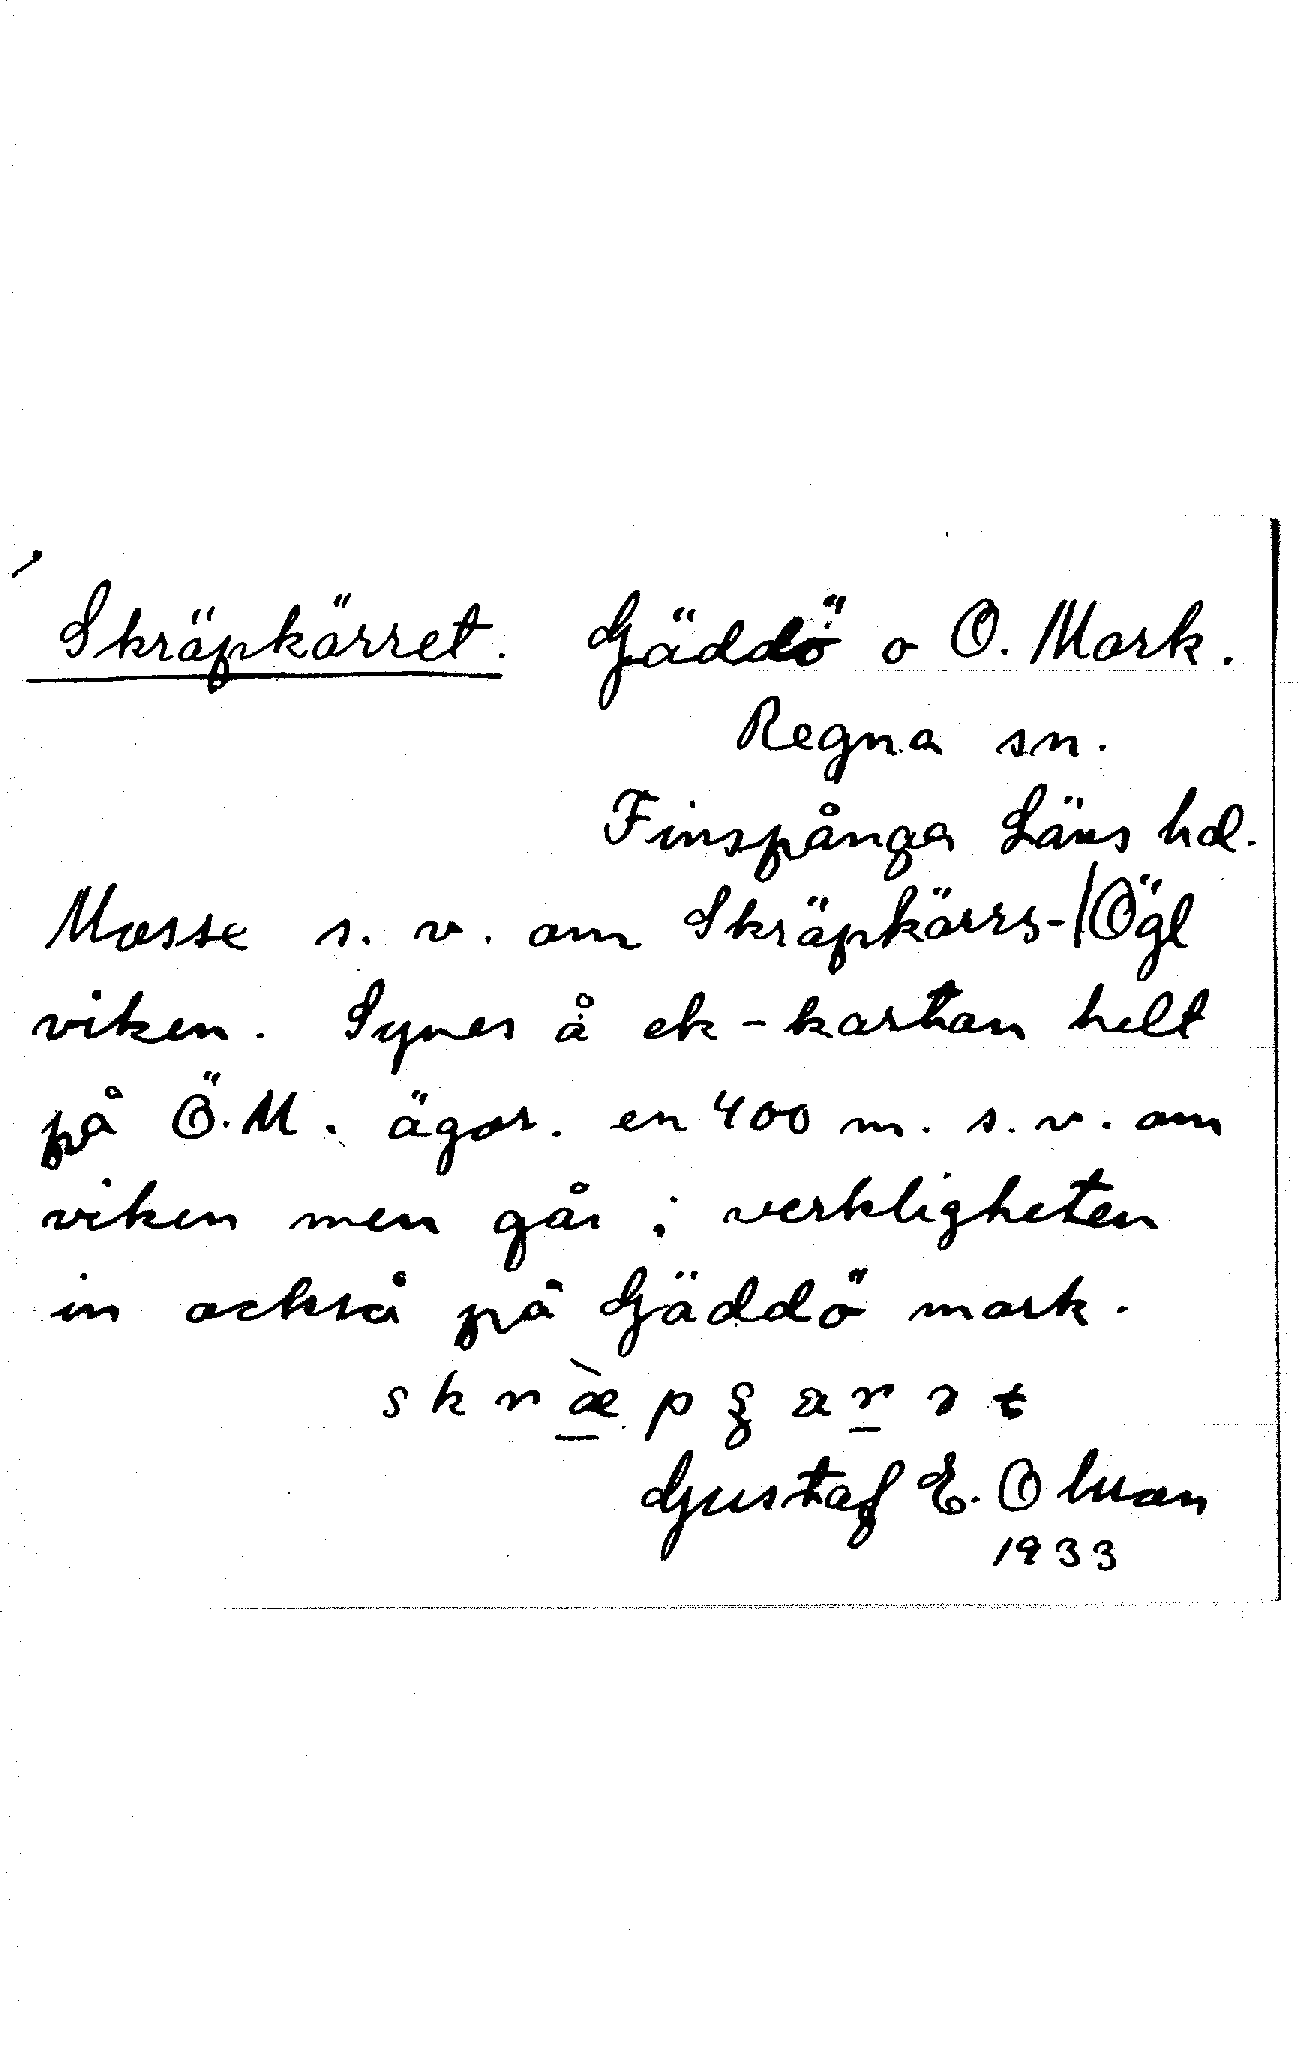 Skräpkärret. Gäddö o O. Mark.
Regna sn.
Finspånga Läns hd.
Mosse s. v. om Skräpkärrs-/Ögl
viken. Synes å ek-kartan helt
på Ö.M. ägor. en 400 m. s.v. om
viken men går i verkligheten
in också på Gäddö mark.
Gustaf E. Olsson
1933